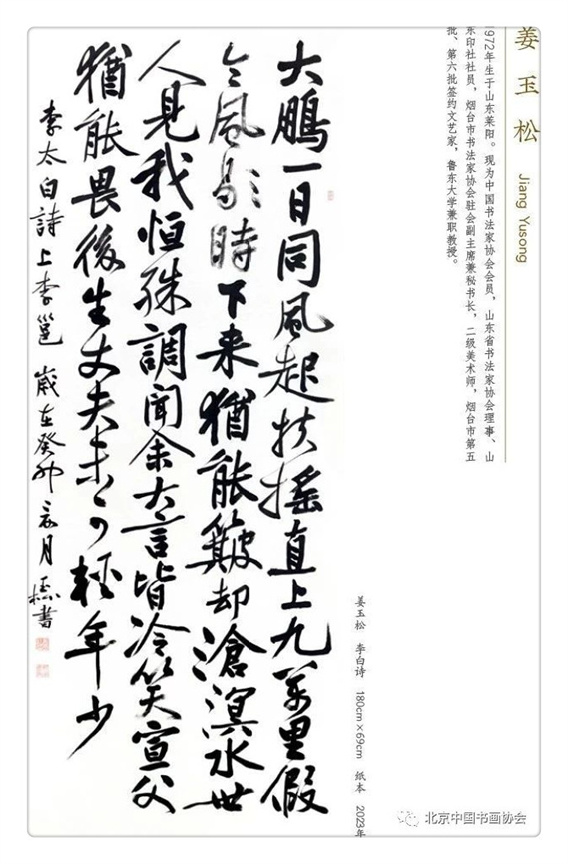 姜玉松 Jiang Yusong
1972年生于山东莱阳。现为中国书法家协会会员，山东省书法家协会理事、山
东印社社员，烟台市书法家协会驻会副主席兼秘书长，二级美术师，烟台市第五
批、第六批签约文艺家，鲁东大学兼职教授。
姜玉松 李白诗 180cm×69cm 纸本 2023年
大鵬一日同風起扶搖直上九萬里假
令風歇時下来猶能簸却滄溟水世
人見我恒殊調聞余大言皆冷笑宣父
猶能畏後生丈夫未可輕年少
李太白詩上李邕 歲在癸卯 月 松書
北京中国书画协会